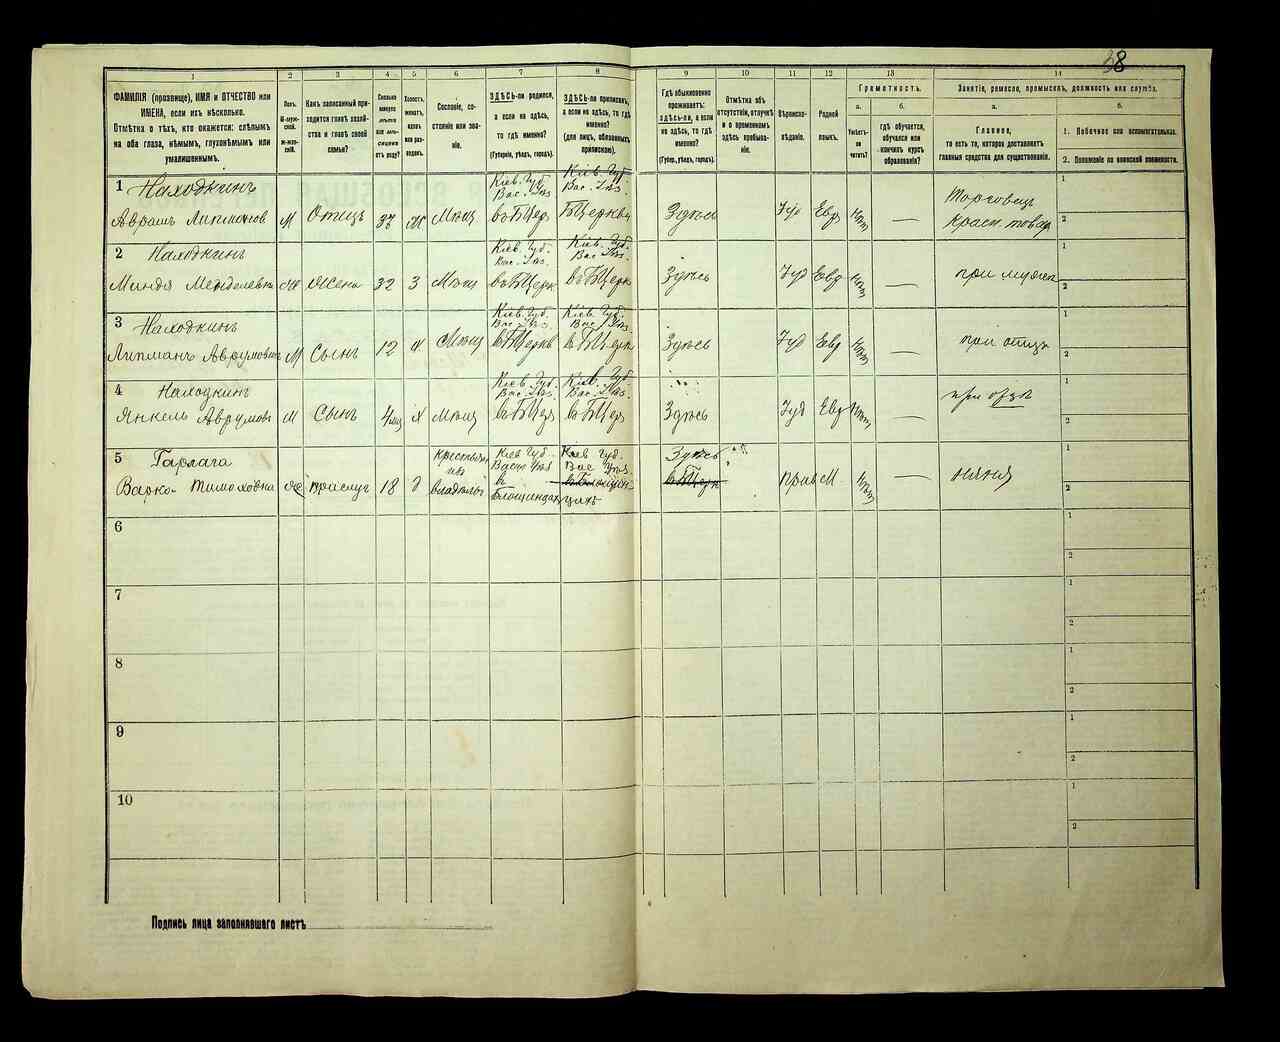 38
1 2 3 4 5 6 7 8 9 10 11 12 13 14
ФАМИЛІЯ (прозвище), ИМЯ и ОТЧЕСТВО или
ИМЕНА, если ихъ нѣсколько.
Отмѣтка о тѣхъ, кто окажется: слѣпымъ
на оба глаза, нѣмымъ, глухонѣмымъ или
умалишеннымъ.
Полъ.
М-муж-
ской.
Ж-жен-
скій.
Какъ записанный при-
ходится главѣ хозяй-
ства и главѣ своей
семьи?
Сколько
минуло
лѣтъ
или мѣ-
сяцевъ
отъ роду?
Холостъ,
женатъ,
вдовъ
или раз-
веденъ.
Сословіе, со-
стояніе или зва-
ніе.
ЗДѢСЬ-ли родился,
а если не здѣсь,
то гдѣ именно?
(Губернія, уѣздъ, городъ).
ЗДѢСЬ-ли приписанъ,
а если не здѣсь, то гдѣ
именно?
(для лицъ, обязанныхъ
припискою).
Гдѣ обыкновенно
проживаетъ:
здѣсь-ли, а если
не здѣсь, то гдѣ
именно?
(Губер., уѣздъ, городъ).
Отмѣтка объ
отсутствіи, отлучкѣ
и о временномъ
здѣсь пребыва-
ніи.
Вѣроиспо-
вѣданіе.
Родной
языкъ.
Грамотность.
а.
Умѣетъ-
ли
читать?
б.
гдѣ обучается,
обучался или
кончилъ курсъ
образованія?
Занятіе, ремесло, промыселъ, должность или служба.
а.
Главное,
то есть то, которое доставляетъ
главныя средства для существованія.
б.
1. Побочное или вспомогательное.
2. Положеніе по воинской повинности.
1 Находкинъ Кіев. Губ. Кіев. Губ. Торговецъ 1
Вас. Уѣз. Вас. Уѣз.
Аврамъ Липманов М Отецъ 37 Ж Мѣщ въ БЦер БЦеркви Здѣсь Іуд Евр Нѣт — красн. товар 2
2 Находкинъ Кіев. Губ. Кіев. Губ. 1
Вас. Уѣз. Вас Уѣз.
Миндя Менделевна Же Жена 32 З Мѣщ въ БЦерк въ БЦерк Здѣсь Іуд Евр Нѣт — при мужѣ 2
3 Находкинъ Кіев. Губ. Кіев. Губ. 1
Вас. Уѣз. Вас. Уѣз.
Липманъ Аврумович М Сынъ 12 Х Мѣщ въ БЦерк въ БЦерк Здѣсь Іуд Евр Нѣт — при отцѣ 2
4 Находкинъ Кіев. Губ. Кіев. Губ. при отцѣ 1
Вас. Уѣз. Вас. Уѣз.
Янкель Аврумов М Сынъ 4 Х Мѣщ въ БЦер въ БЦер Здѣсь Іуд Евр Нѣт — 2
5 Гарлага крестьян Кіев Губ. Кіев Губ. Здѣсь 1
Васил Уѣз Вас Уѣз.
Варка Тимоховна Же прислуг 18 Д в въ БЦерк прав М. Нѣт — няня 2
Блощинцах
6 1
2
7 1
2
8 1
2
9 1
2
10 1
2
Подпись лица заполнявшаго листъ